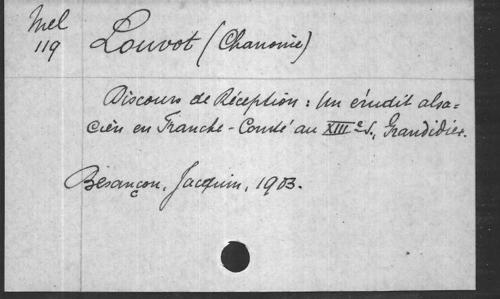 Mel
119
Louvot (Chanoine)
Discours de Réception : Un érudit alsa-
cien en Franche-Comté au XIIIe S., Grandidier.
Besançon, Jacquin, 1903.